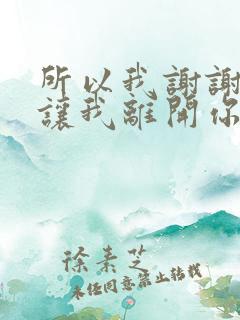 所以我謝謝
讓我離開你
徐素芝
未经同意禁止转载